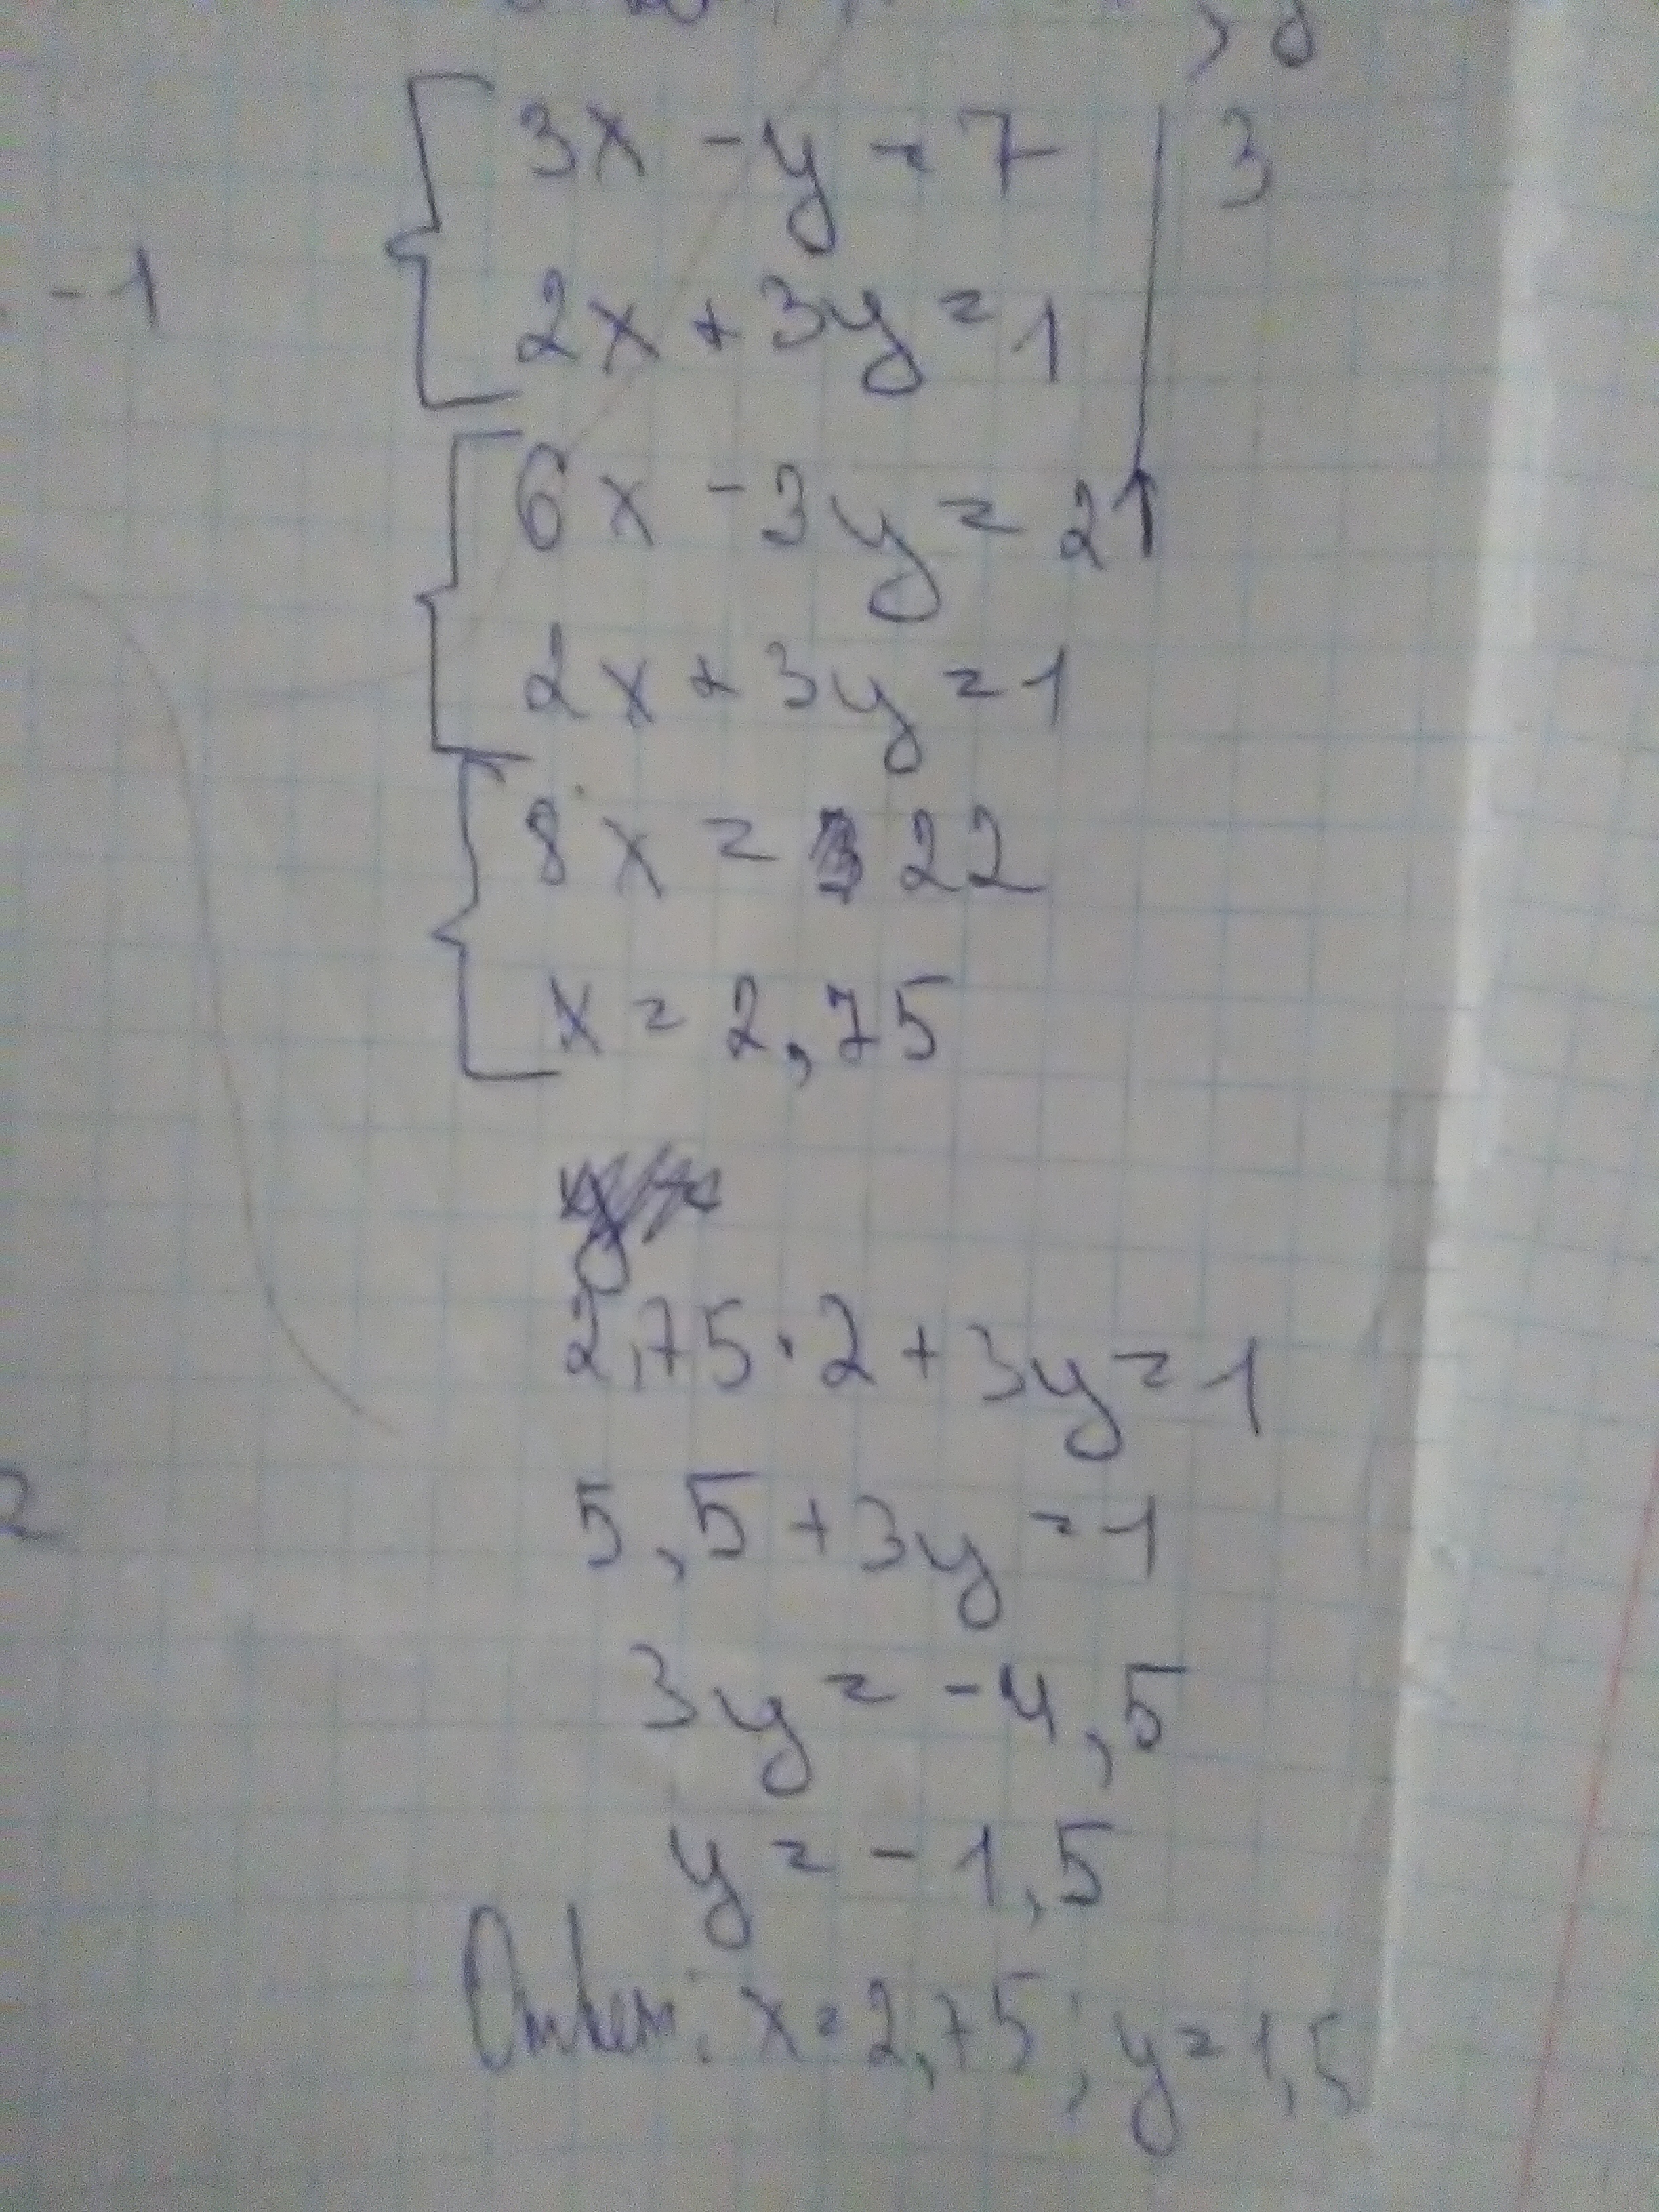 3x - y = 7 | 3
-1
2x + 3y = 1
6x - 3y = 21
2x + 3y = 1
8x = 22
x = 2,75
2,75 · 2 + 3y = 1
5,5 + 3y = 1
2
3y = -4,5
y = -1,5
Ответ: x = 2,75; y = 1,5